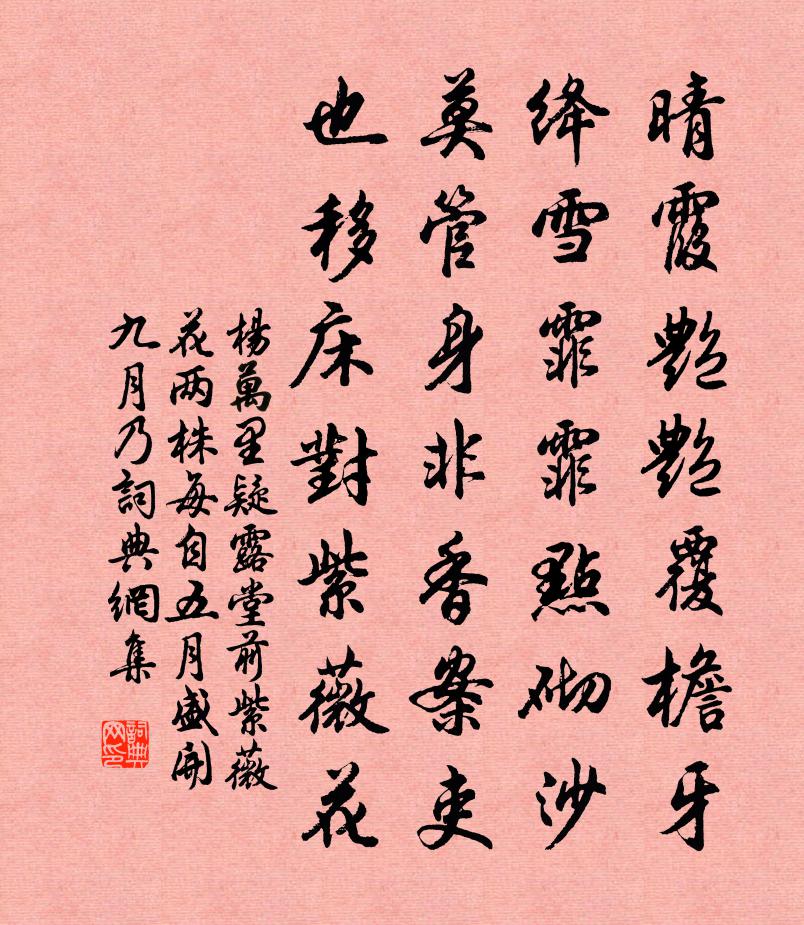 晴霞艷艷覆檐牙
绛雪霏霏點砌沙
莫管身非香案吏
也移床對紫薇花
楊萬里疑露堂前紫薇
花两株每自五月盛開
九月乃詞典網集
詞典网印